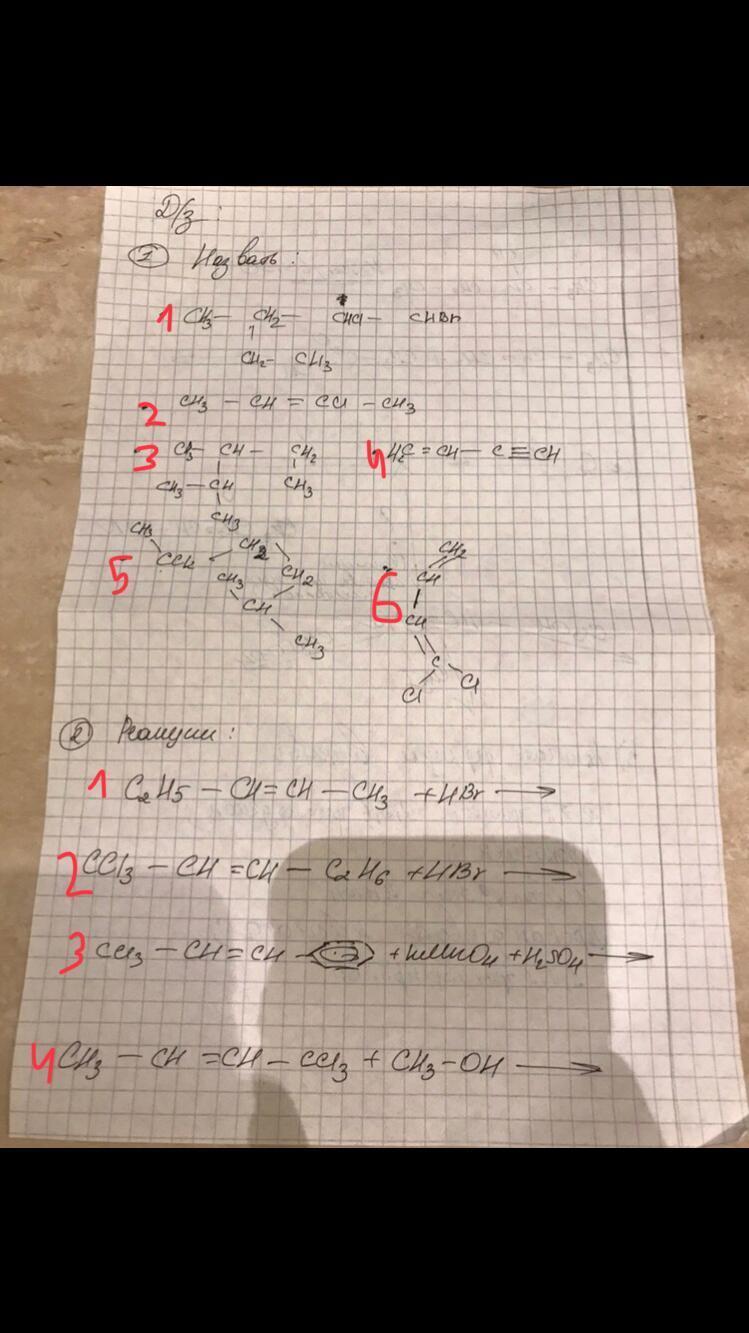 Д/з:
① Назвать:
1 CH3 — CH2 — CHCl — CHBr
CH2 — CH3
2 CH3 — CH = CCl — CH3
3 CH3 — CH — CH2 4 H2C = CH — C ≡ CH
CH3 — CH CH3
CH3
CH3 CH2 CH2
5 CH3 CH2 6 CH
CH CH
CH3 C
Cl Cl
② Реакции:
1 C2H5 — CH = CH — CH3 + HBr →
2 CCl3 — CH = CH — C2H6 + HBr →
3 CCl3 — CH = CH — + KMnO4 + H2SO4 →
4 CH3 — CH = CH — CCl3 + CH3 — OH →